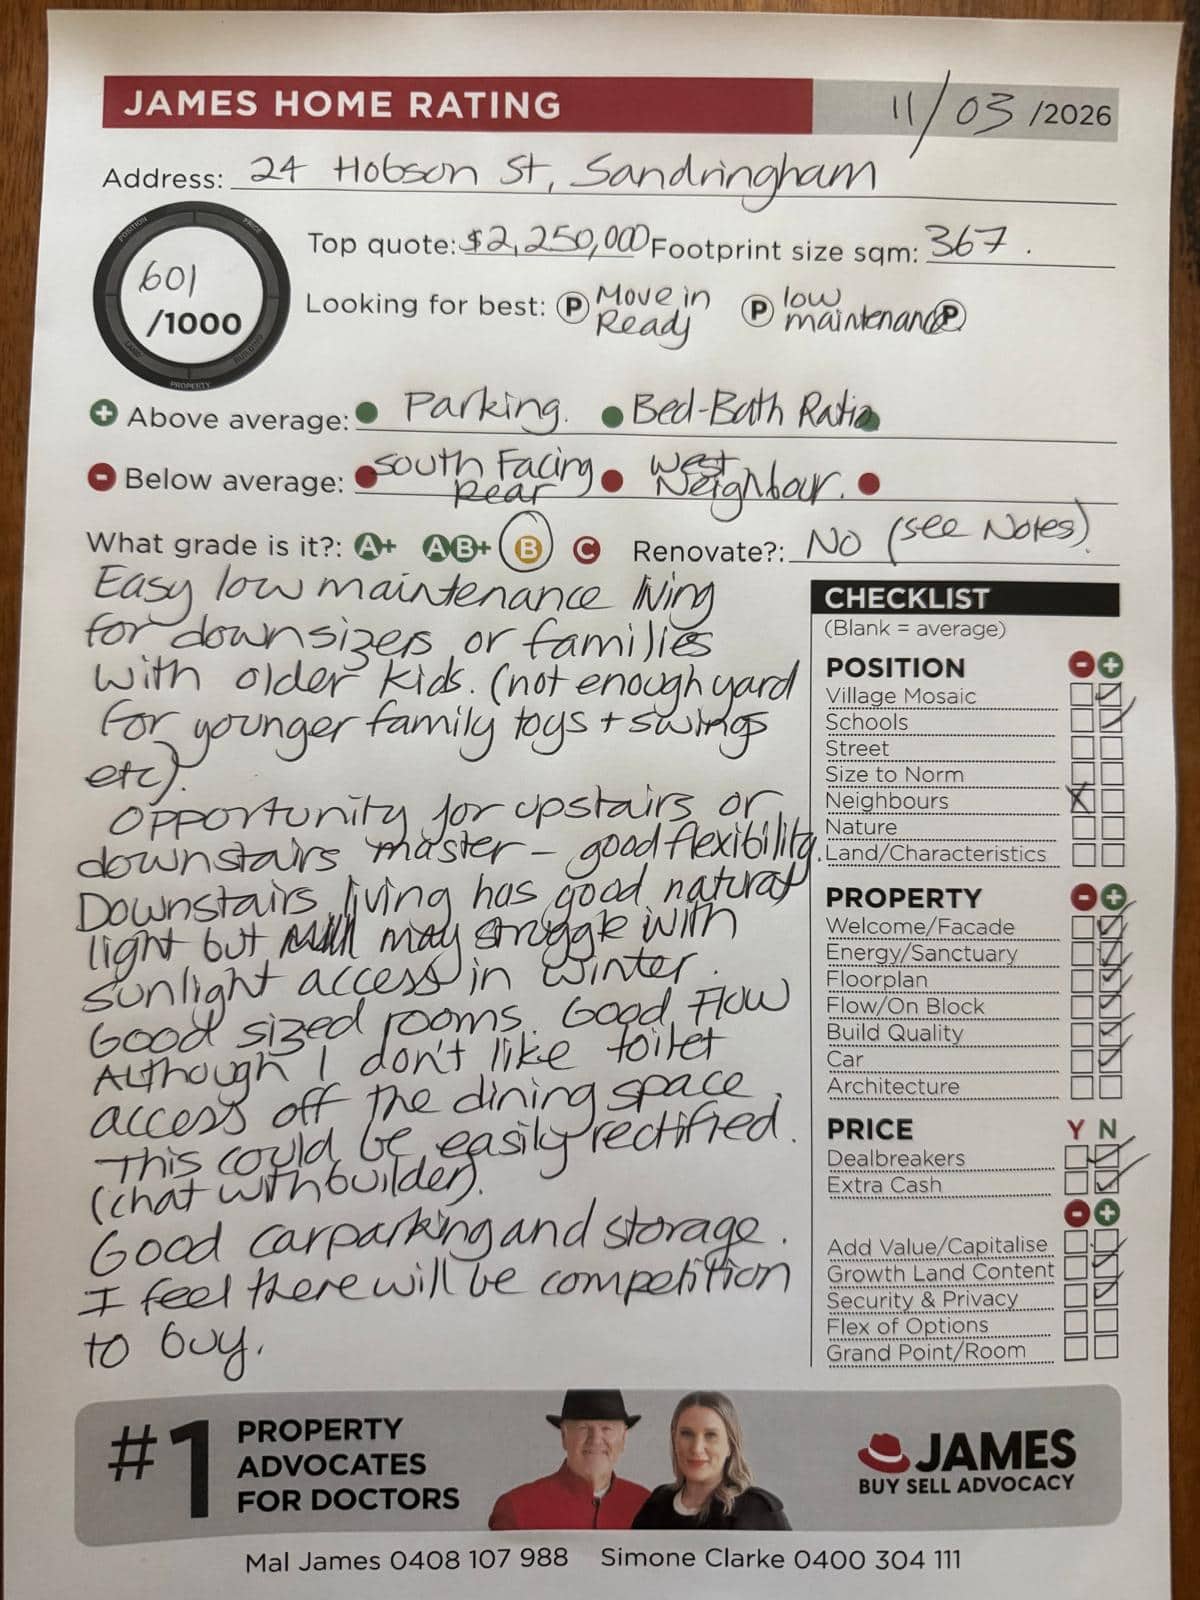 JAMES HOME RATING 11/03/2026
Address: 24 Hobson St, Sandringham
POSITION PRICE LAND BUILDING PROPERTY
601
/1000
Top quote: $2,250,000 Footprint size sqm: 367.
Looking for best: P Move in Ready P low maintenance P
+ Above average: Parking. Bed-Bath Ratio
- Below average: South Facing Rear West Neighbour.
What grade is it?: A+ AB+ B C Renovate?: No (see Notes).
Easy low maintenance living
for downsizers or families
with older kids. (not enough yard
for younger family toys + swings
etc).
Opportunity for upstairs or
downstairs master - good flexibility.
Downstairs living has good natural
light but may struggle with
sunlight access in winter.
Good sized rooms. Good Flow
Although I don't like toilet
access off the dining space.
This could be easily rectified.
(chat with builder).
Good carparking and storage.
I feel there will be competition
to buy.
CHECKLIST
(Blank = average)
POSITION - +
Village Mosaic
Schools
Street
Size to Norm
Neighbours
Nature
Land/Characteristics
PROPERTY - +
Welcome/Facade
Energy/Sanctuary
Floorplan
Flow/On Block
Build Quality
Car
Architecture
PRICE Y N
Dealbreakers
Extra Cash
- +
Add Value/Capitalise
Growth Land Content
Security & Privacy
Flex of Options
Grand Point/Room
#1 PROPERTY
ADVOCATES
FOR DOCTORS
JAMES
BUY SELL ADVOCACY
Mal James 0408 107 988 Simone Clarke 0400 304 111